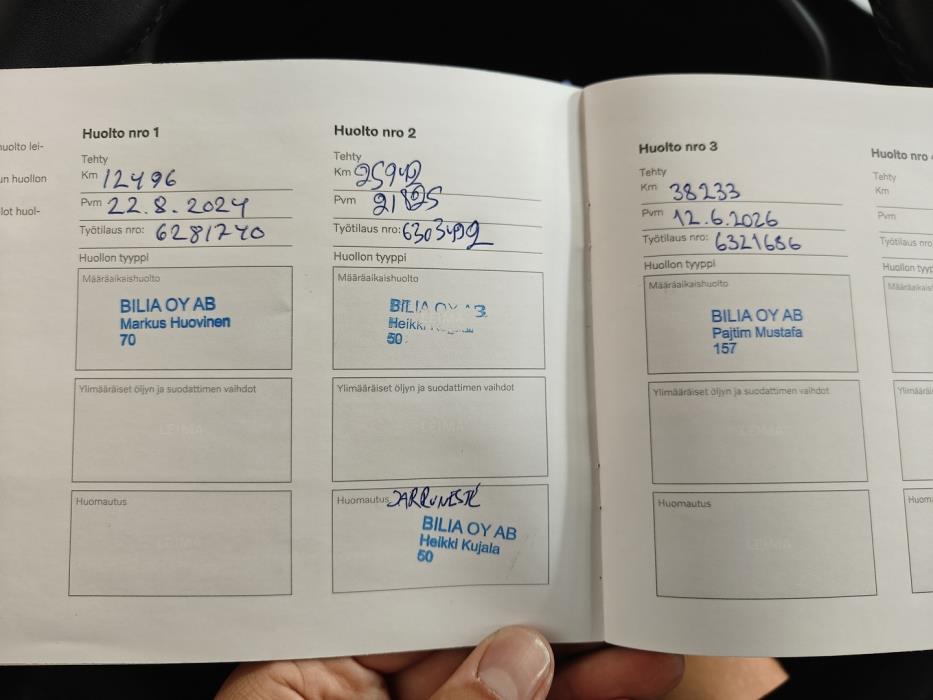 huolto lei-
un huollon
lot huol-
Huolto nro 1
Tehty
Km 12496
Pvm 22.8.2024
Työtilaus nro: 6281740
Huollon tyyppi
Määräaikaishuolto
BILIA OY AB
Markus Huovinen
70
Ylimääräiset öljyn ja suodattimen vaihdot
LEIMA
Huomautus
Huolto nro 2
Tehty
Km 25942
Pvm
Työtilaus nro:
Huollon tyyppi
Määräaikaishuolto
BILIA OY AB
Heikki
50
Ylimääräiset öljyn ja suodattimen vaihdot
LEIMA
Huomautus JARRUNESTE
BILIA OY AB
Heikki Kujala
50
Huolto nro 3
Tehty
Km 38233
Pvm 12.6.2026
Työtilaus nro: 6321686
Huollon tyyppi
Määräaikaishuolto
BILIA OY AB
Pajtim Mustafa
157
Ylimääräiset öljyn ja suodattimen vaihdot
LEIMA
Huomautus
LEIMA
Huolto nro
Tehty
Km
Pvm
Työtilaus nro
Huollon tyyp
Määräaikais
Ylimäärä
Huom